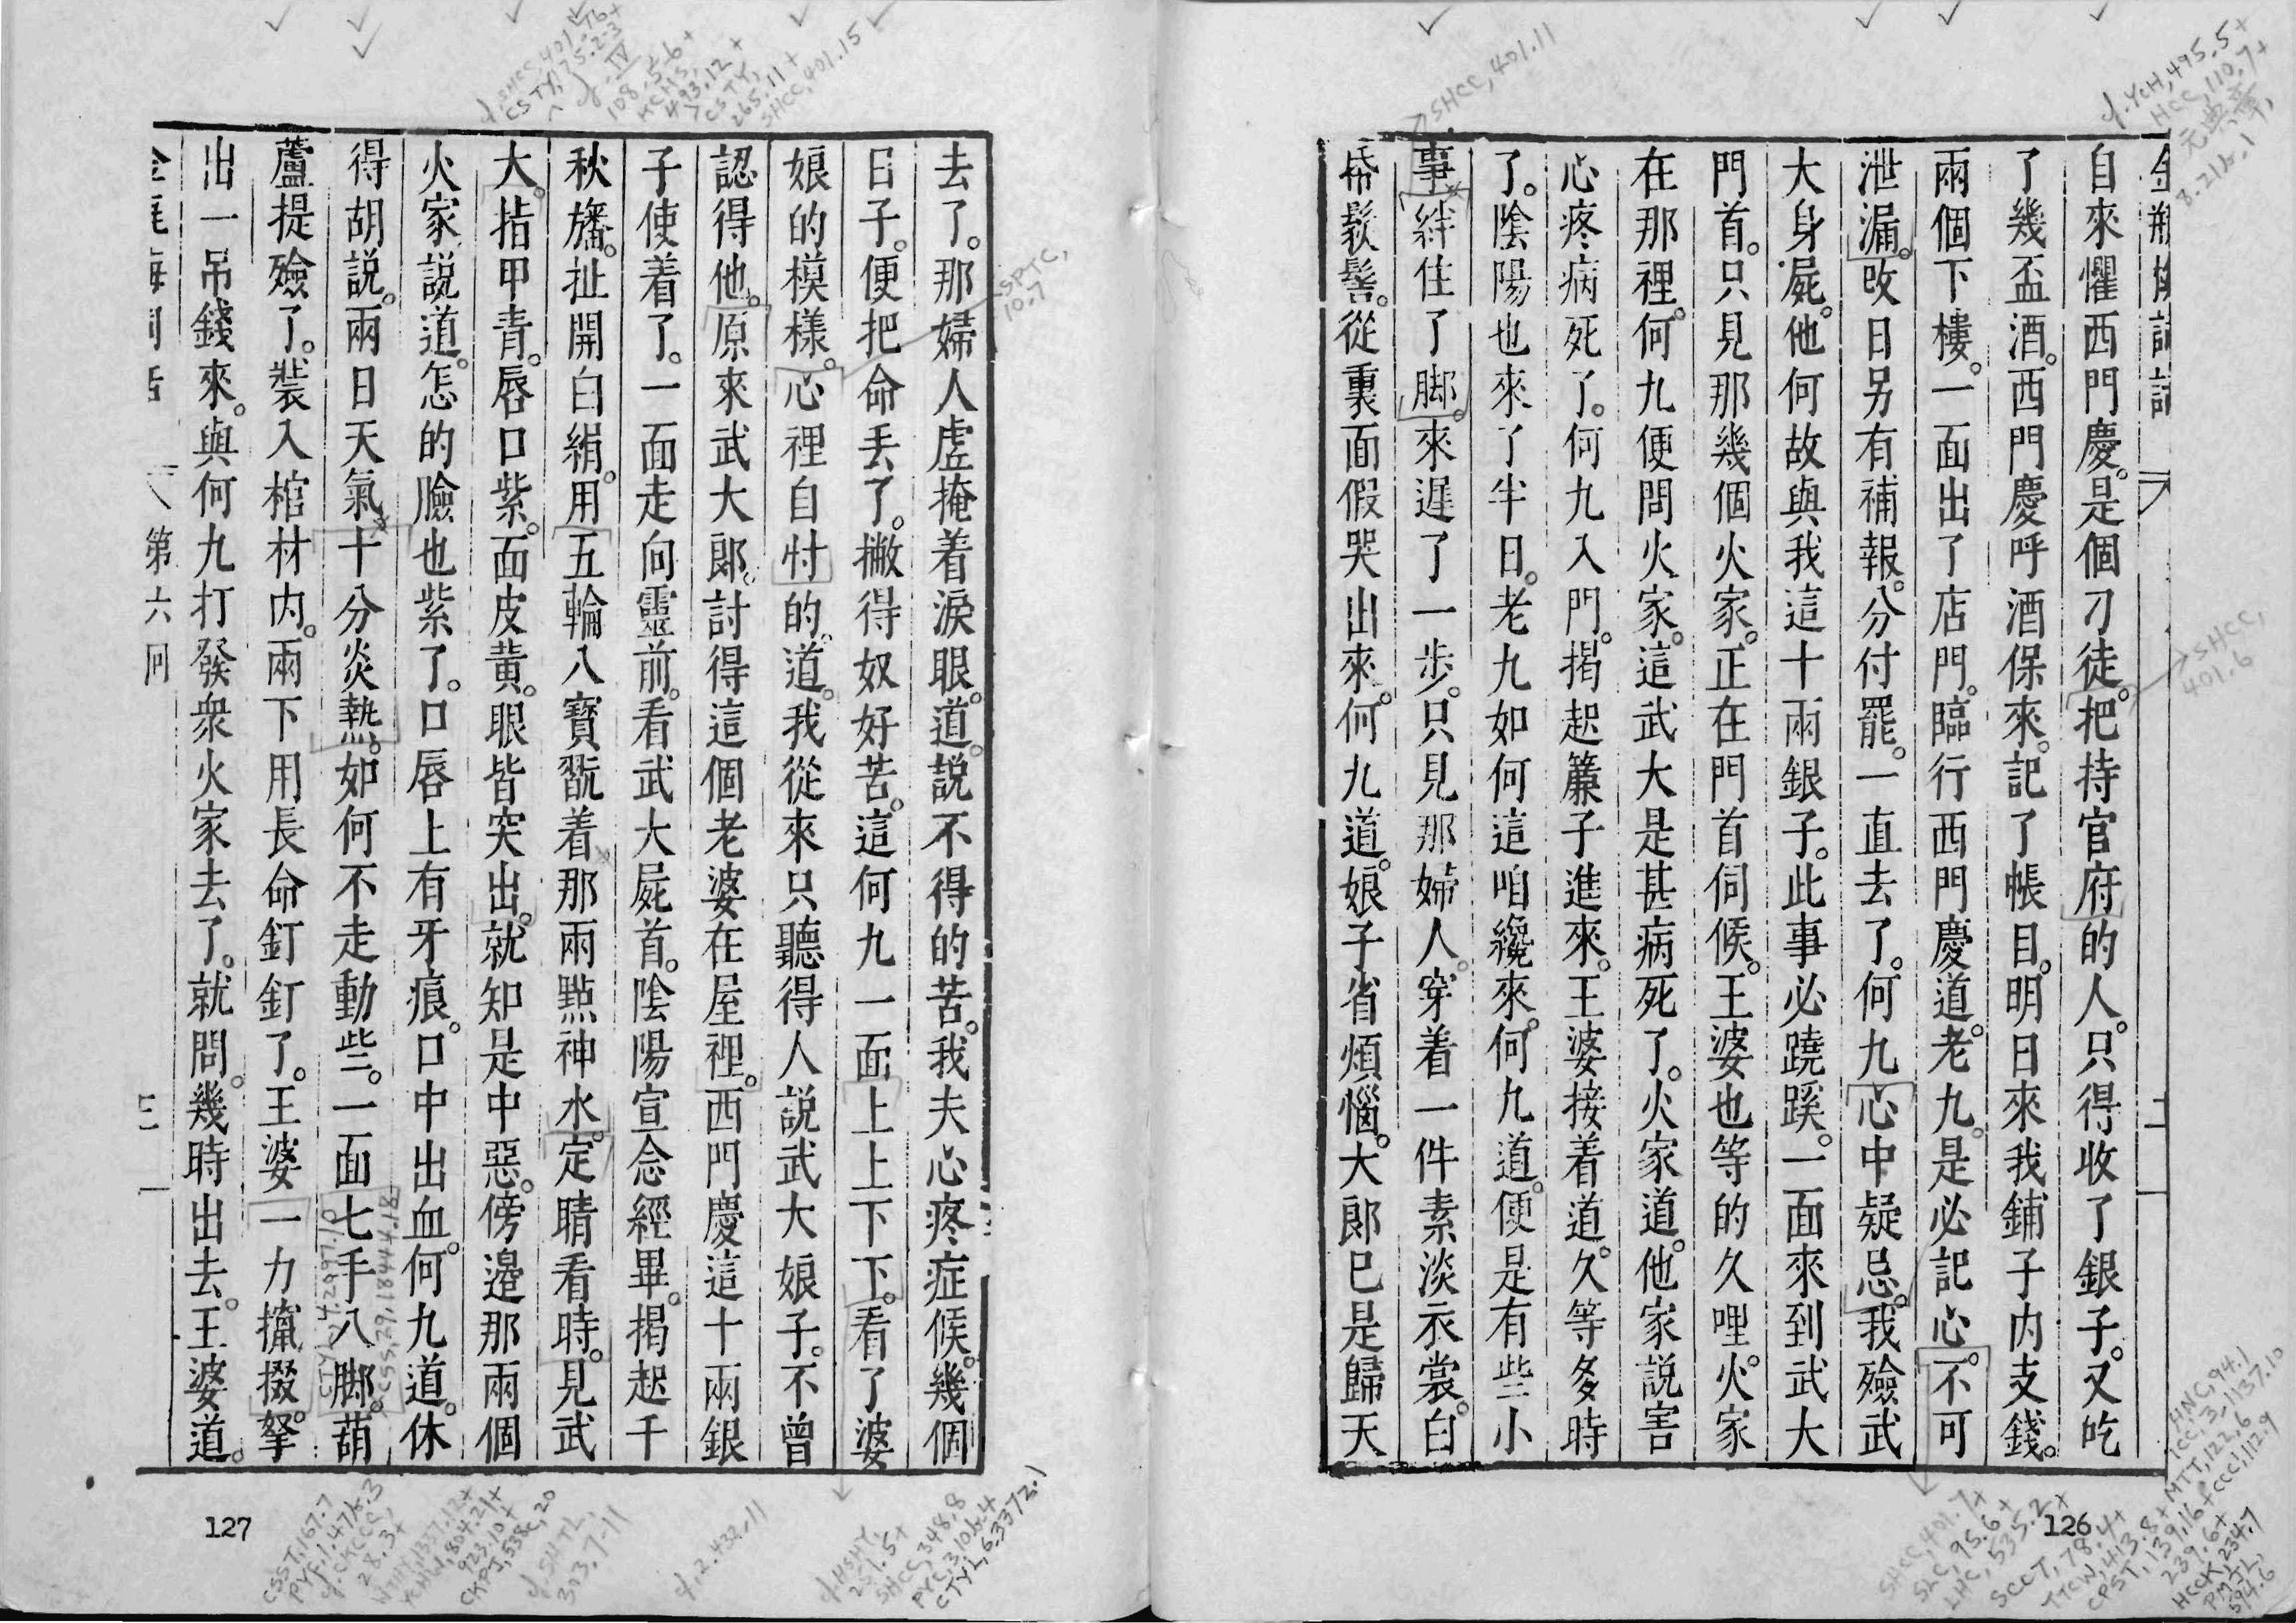 自來懼西門慶。是個刁徒。把持官府的人。只得收了銀子。又吃
了幾盃酒。西門慶呼酒保來。記了帳目。明日來我鋪子内支錢。
兩個下樓。一面出了店門。臨行西門慶道。老九。是必記心。不可
泄漏。改日另有補報。分付罷。一直去了。何九心中疑忌。我殮武
大身屍。他何故與我這十兩銀子。此事必蹺蹊。一面來到武大
門首。只見那幾個火家。正在門首伺候。王婆也等的久哩。火家
在那裡。何九便問火家。這武大是甚病死了。火家道。他家說害
心疼病死了。何九入門。揭起簾子進來。王婆接着道。久等多時
了。陰陽也來了半日。老九如何這咱纔來。何九道。便是有些小
事。絆住了脚。來遲了一步。只見那婦人。穿着一件素淡衣裳。白
䯼髻。從裏面假哭出來。何九道。娘子省煩惱。大郎已是歸天
去了。那婦人虛掩着淚眼。道。説不得的苦。我夫心疼症候。幾個
日子。便把命丢了。撇得奴好苦。這何九一面上上下下。看了婆
娘的模樣。心裡自忖的。道。我從來只聽得人説武大娘子。不曾
認得他。原來武大郎。討得這個老婆在屋裡。西門慶這十兩銀
子使着了。一面走向靈前。看武大屍首。陰陽宣念經畢。揭起千
秋旛。扯開白絹。用五輪八寶翫着那兩點神水。定睛看時。見武
大。指甲青。唇口紫。面皮黃。眼皆突出。就知是中惡。傍邊那兩個
火家説道。怎的臉也紫了。口唇上有牙痕。口中出血。何九道。休
得胡説。兩日天氣十分炎熱。如何不走動些。一面七手八脚。葫
蘆提殮了。裝入棺材内。兩下用長命釘釘了。王婆一力攛掇。拏
出一吊錢來。與何九打發衆火家去了。就問。幾時出去。王婆道。
第六回
127
126
SHCC, 401.11
SHCC, 401.6
SPTC, 10.7
SHCC, 401.15